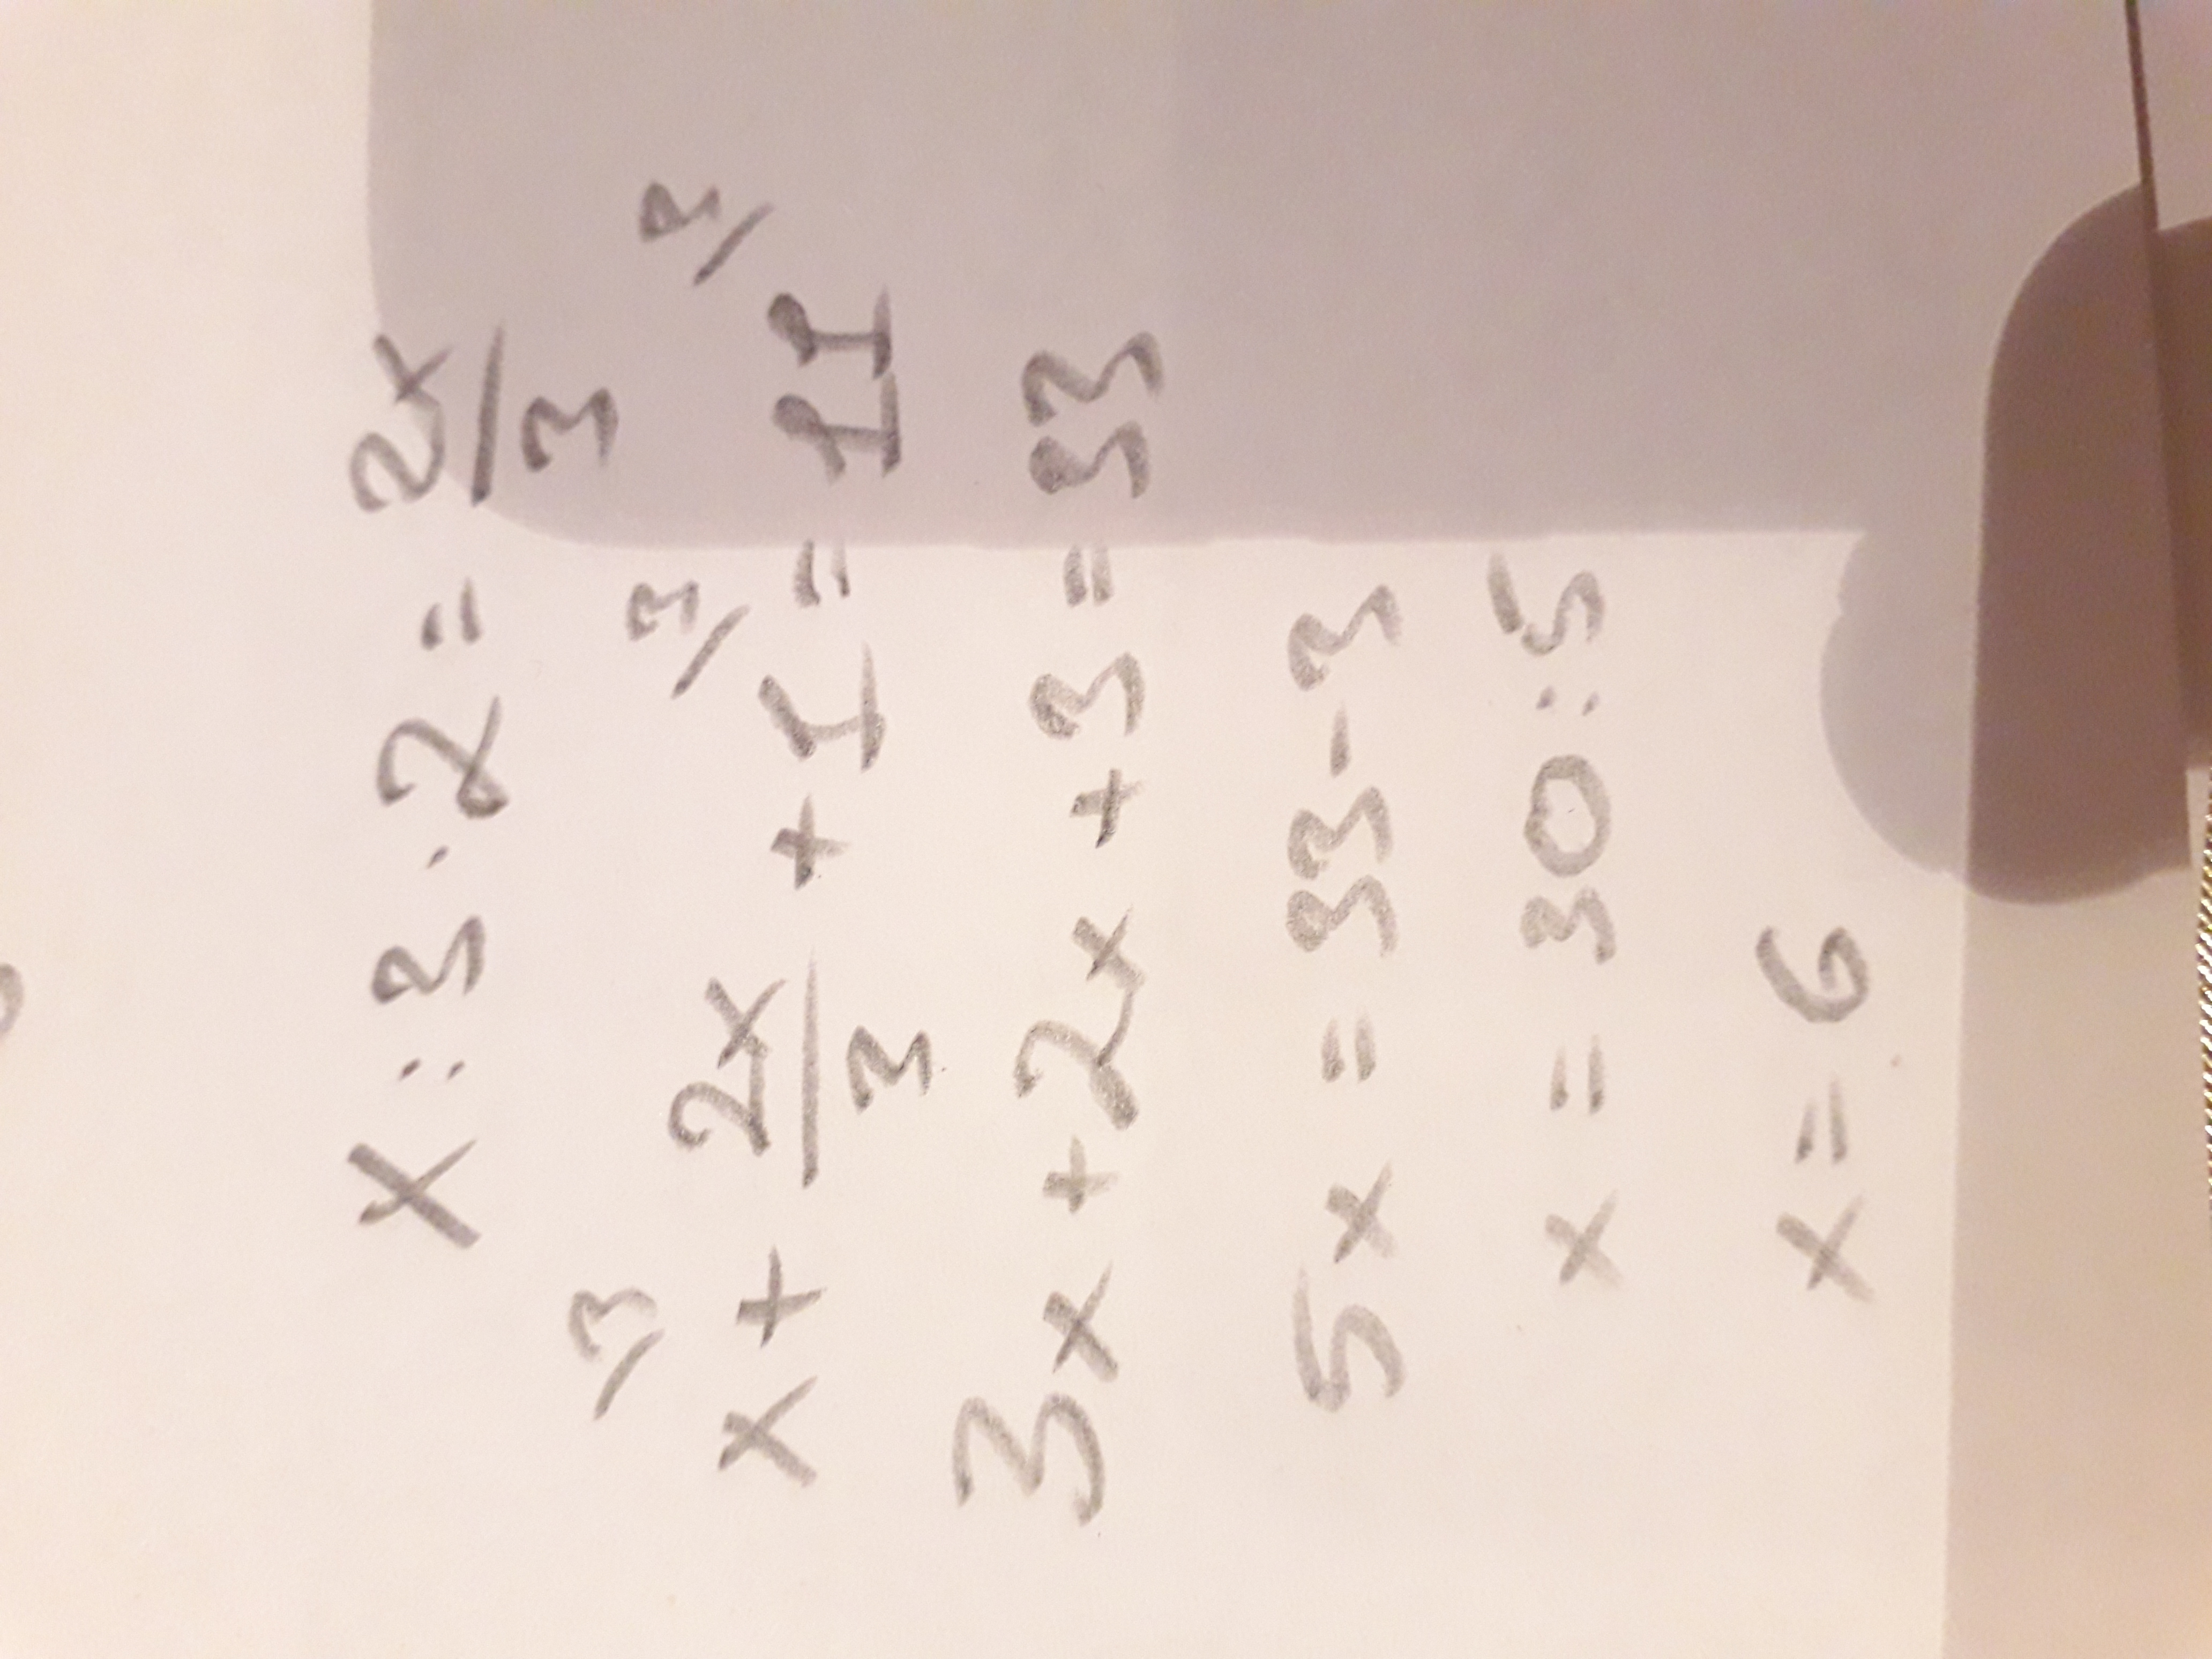 x : 3 · 2 = 2x/3
3/ 3/ 3/
x + 2x/3 + 1 = 11
3x + 2x + 3 = 33
5x = 33 - 3
x = 30 : 5
x = 6